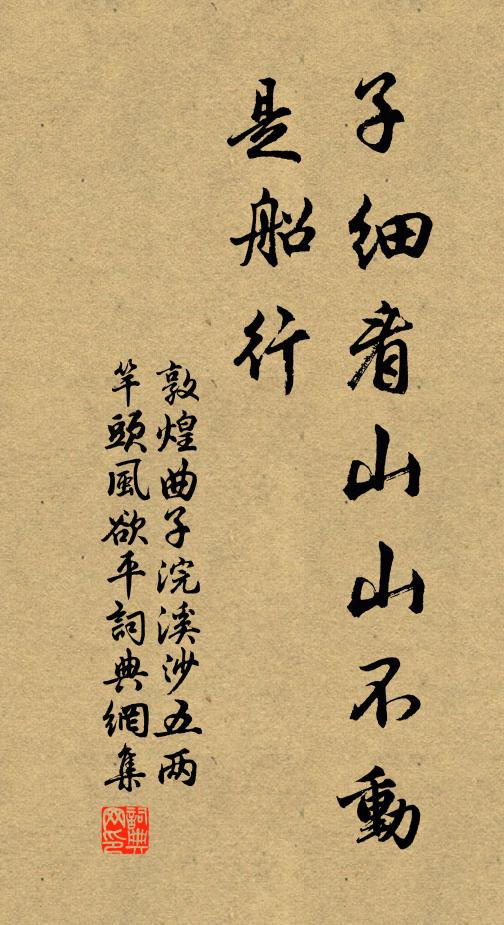 子细看山山不動
是船行
敦煌曲子浣溪沙五两
竿頭風欲平詞典網集
詞典网印